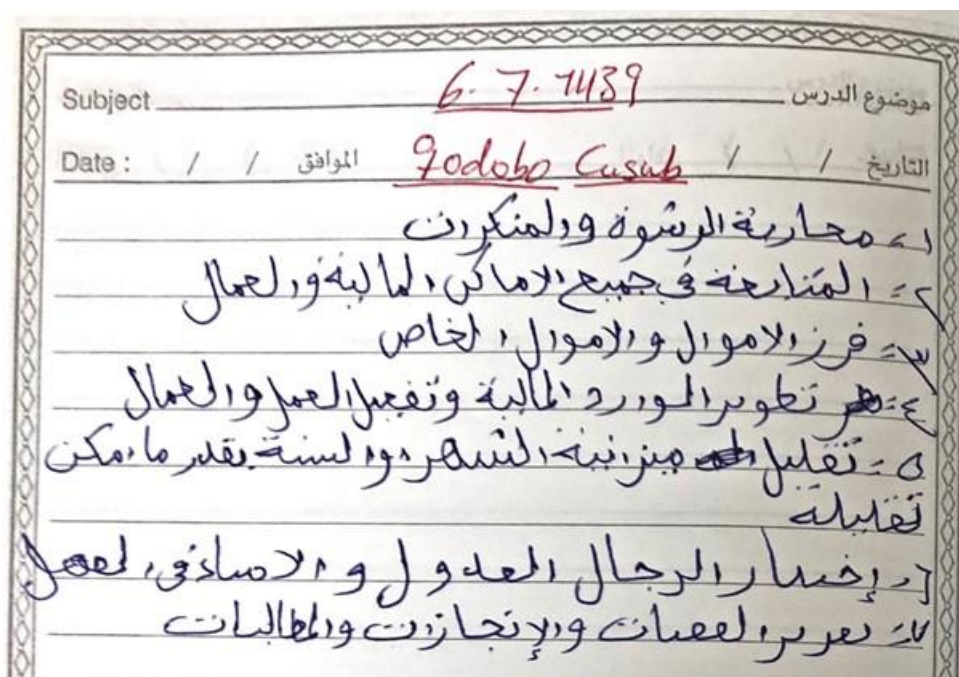 Subject 6.7.1439 موضوع الدرس
Date : / / الموافق Qodobo Cusub / / التاريخ
١- محاربة الرشوة والمنكرات
٢- المتابعة في جميع الاماكن المالية والعمال
٣- فرز الاموال و الاموال الخاص
٤- تطوير الموارد المالية وتفعيل العمل والعمال
٥- تقليل ميزانية الشهر والسنة بقدر ما امكن
تقليلة
٦- إختيار الرجال العدول و الامناء في العمل
٧- والإنجازات والمطالبات